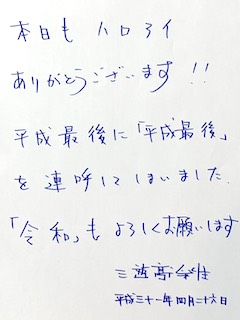 本日も ハロアイ
ありがとうございます !!
平成最後に「平成最後」
を連呼してしまいました
「令和」もよろしくお願いします
三遊亭
平成三十一年四月二十六日